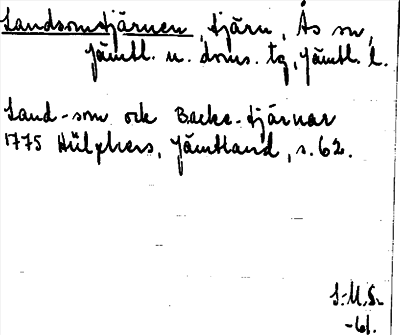 Landsomtjärnen, tjärn, Ås sn,
Jämtl. n. doms. tg, Jämtl. l.
Land-som ock Backe-tjärnar
1775 Hülphers, Jämtland, s. 62.
S.M.S.
-61.